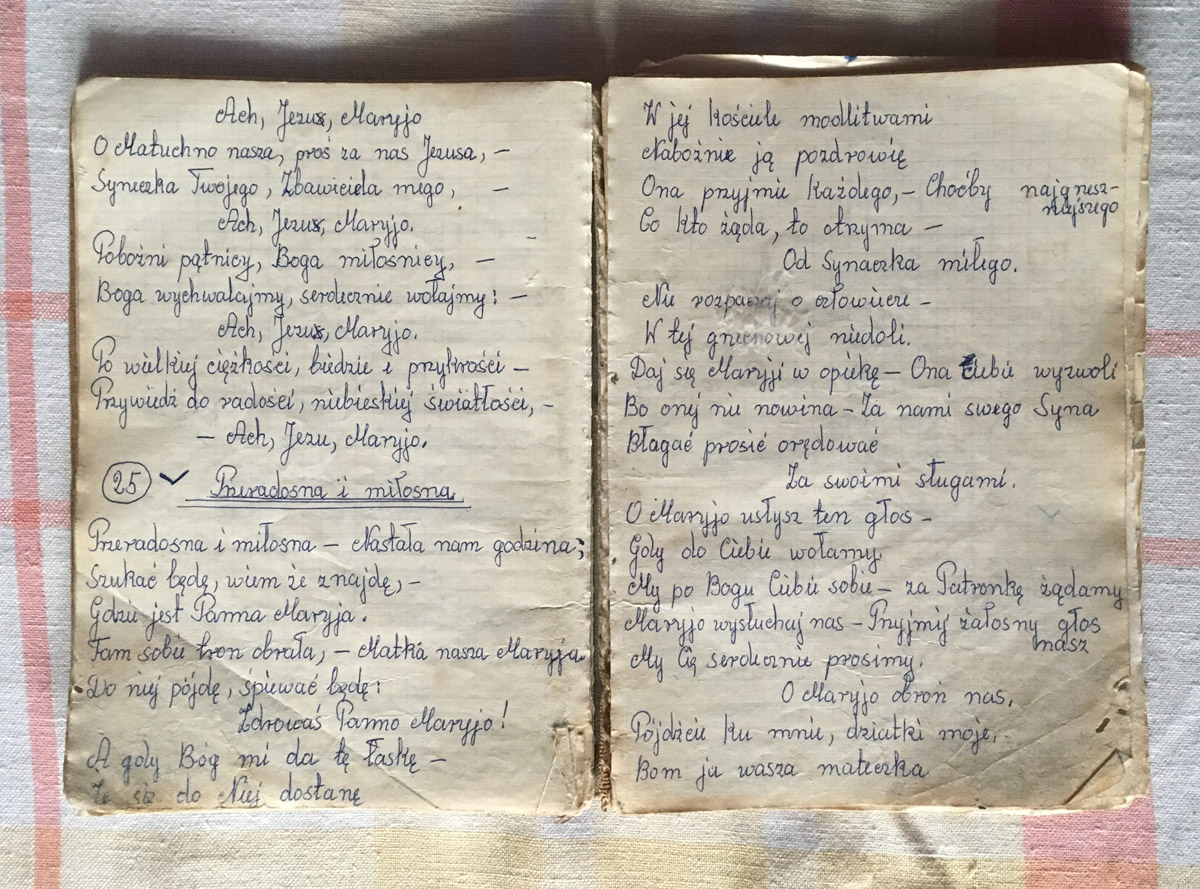 Ach, Jezus, Maryjo
O Matuchno nasza, proś za nas Jezusa, —
Syneczka Twojego, Zbawiciela mego, —
Ach, Jezus, Maryjo.
Pobożni pątnicy, Boga miłośnicy, —
Boga wychwalajmy, serdecznie wołajmy: —
Ach, Jezus, Maryjo.
Po wielkiej ciężkości, biedzie i przykrości —
Przywiedź do radości, niebieskiej światłości, —
— Ach, Jezu, Maryjo.
25 ✓ Przeradosna i miłosna
Przeradosna i miłosna — Nastała nam godzina;
Szukać będę, wiem że znajdę, —
Gdzie jest Panna Maryja.
Tam sobie tron obrała, — Matka nasza Maryja
Do niej pójdę, śpiewać będę:
Zdrowaś Panno Maryjo!
A gdy Bóg mi da tę łaskę —
Że się do Niej dostanę
W jej kościele modlitwami
Nabożnie ją pozdrowię
Ona przyjmie każdego, — Choćby najgrzesz-
niejszego
Co kto żąda, to otrzyma —
Od Synaczka miłego.
Nie rozpaczaj o człowiecze —
W tej grzechowej niedoli.
Daj się Maryji w opiekę — Ona Ciebie wyzwoli
Bo onej nie nowina — Za nami swego Syna
Błagać prosić orędować
Za swoimi sługami.
O Maryjo usłysz ten głos —
Gdy do Ciebie wołamy
My po Bogu Ciebie sobie — za Patronkę żądamy
Maryjo wysłuchaj nas — Przyjmij żałosny głos
nasz
My Cię serdecznie prosimy.
O Maryjo broń nas.
Pójdźcie ku mnie, dziatki moje,
Bom ja wasza mateczka